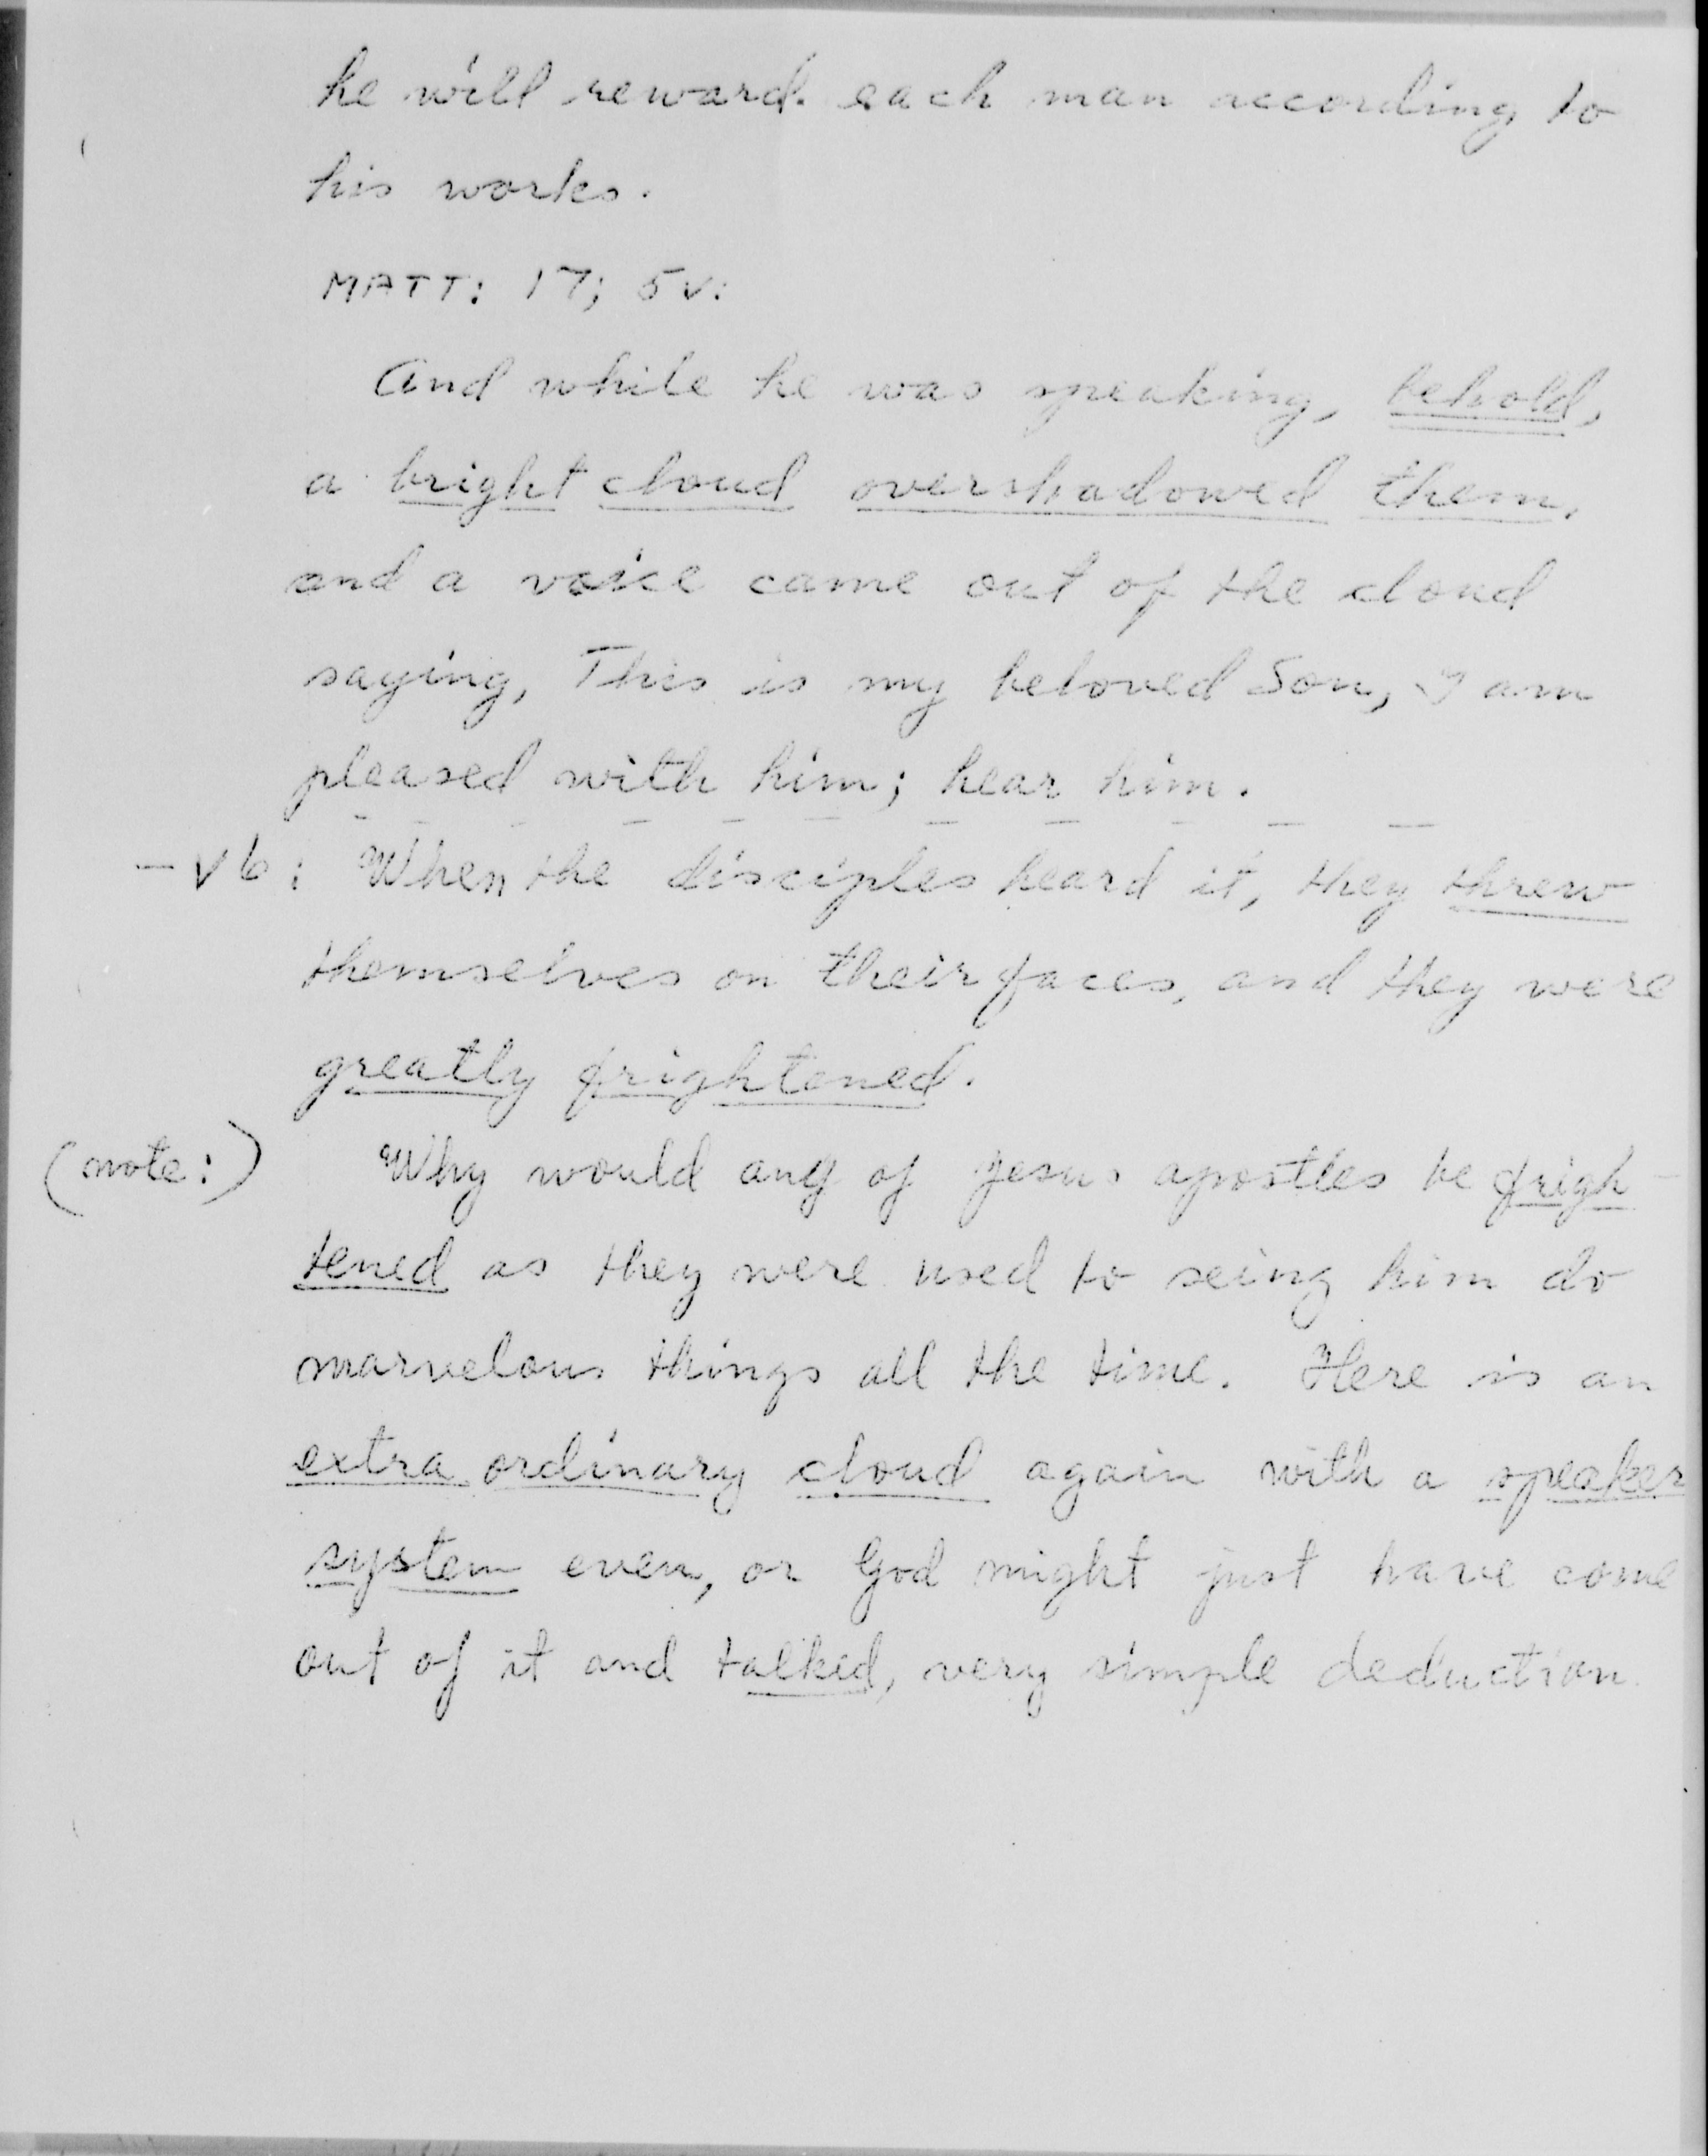 he will reward each man according to
his works.
MATT: 17; 5v:
And while he was speaking, behold,
a bright cloud overshadowed them,
and a voice came out of the cloud
saying, This is my beloved Son, I am
pleased with him; hear him.
- v6: When the disciples heard it, they threw
themselves on their faces, and they were
greatly frightened.
(note:) Why would any of Jesus apostles be frigh-
tened as they were used to seing him do
marvelous things all the time. Here is an
extra ordinary cloud again with a speaker
system even, or God might just have come
out of it and talked, very simple deduction.